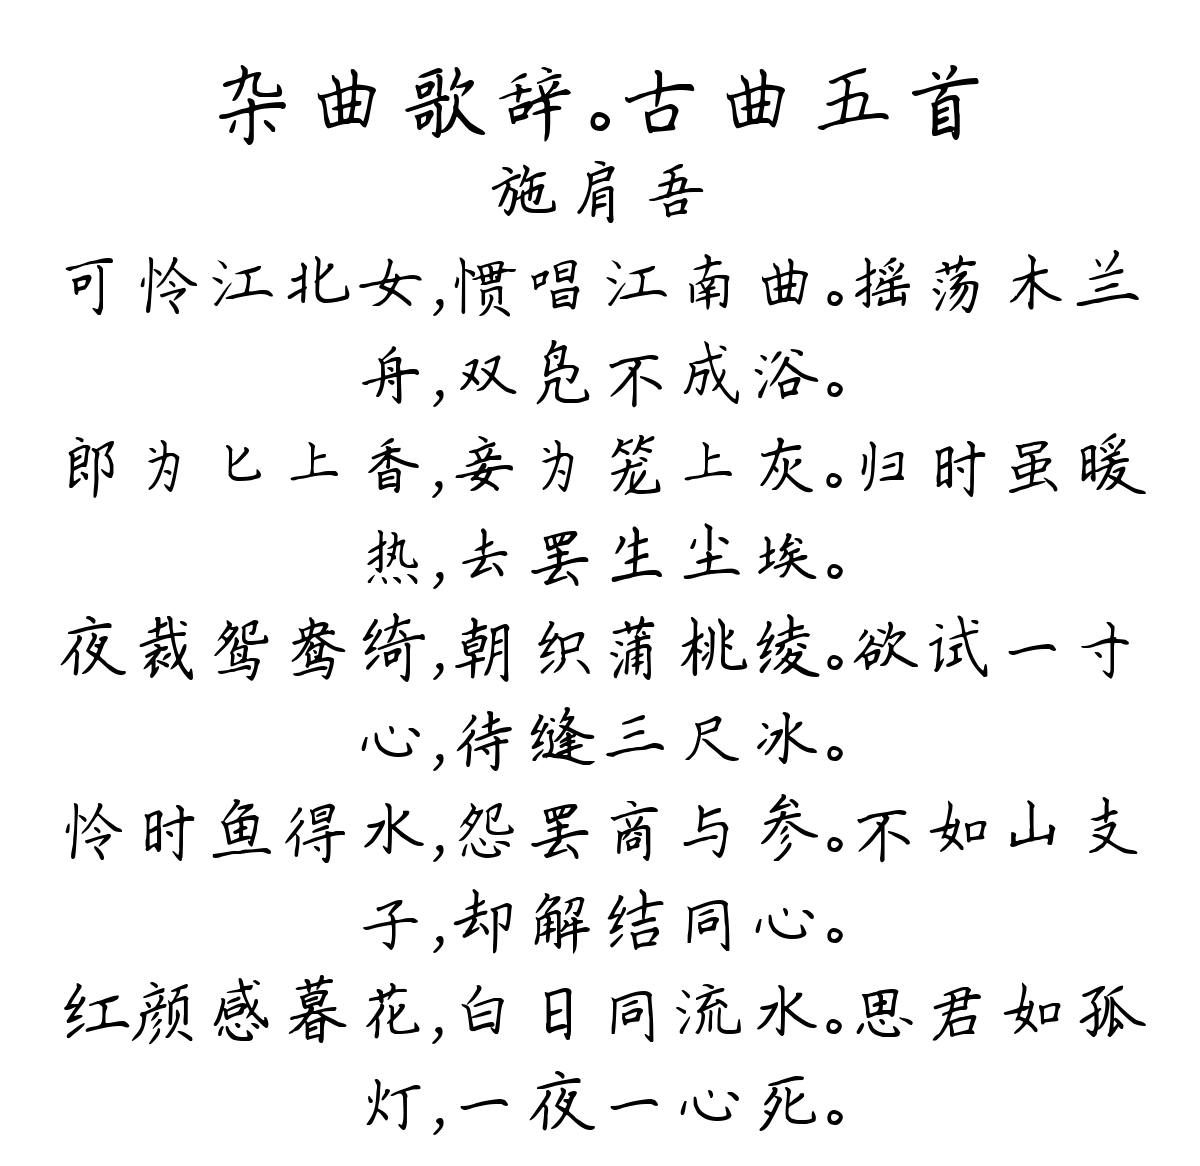 杂曲歌辞。古曲五首
施肩吾
可怜江北女,惯唱江南曲。摇荡木兰
舟,双凫不成浴。
郎为匕上香,妾为笼上灰。归时虽暖
热,去罢生尘埃。
夜裁鸳鸯绮,朝织蒲桃绫。欲试一寸
心,待缝三尺冰。
怜时鱼得水,怨罢商与参。不如山支
子,却解结同心。
红颜感暮花,白日同流水。思君如孤
灯,一夜一心死。